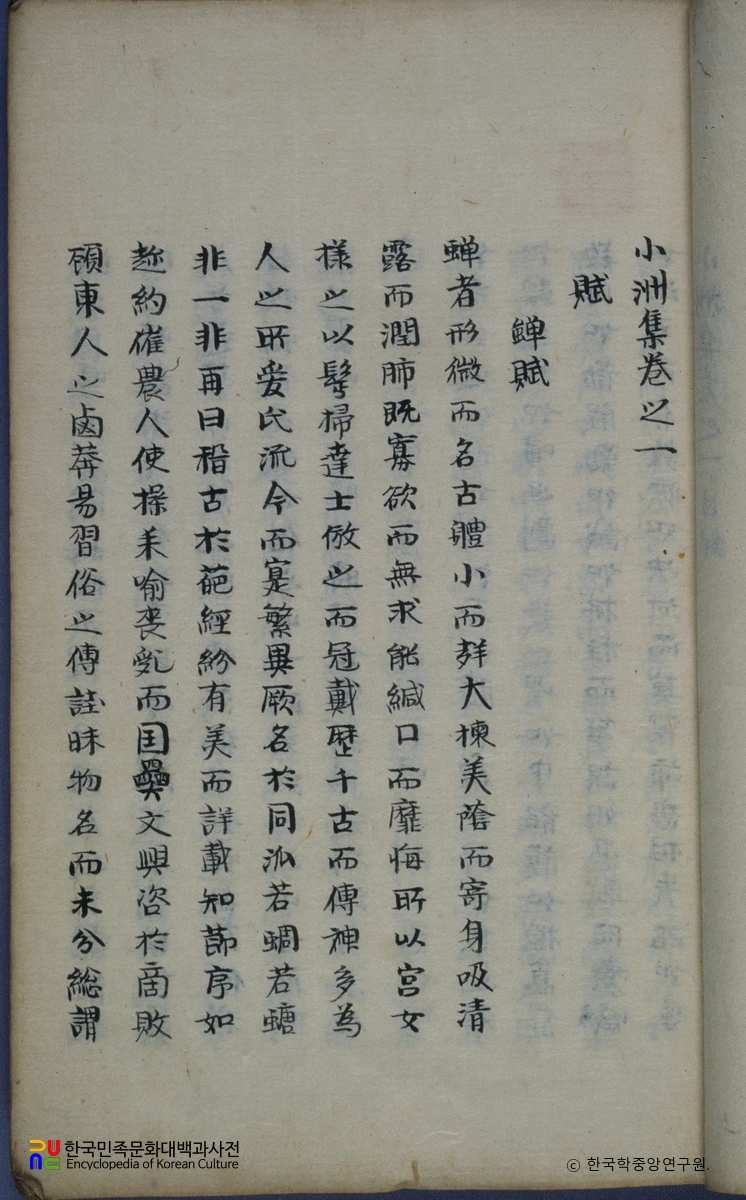 小洲集卷之一
賦
蟬賦
蟬者形微而名古體小而群大揀美蔭而寄身吸清
露而潤肺既寡欲而無求能緘口而靡悔所以宮女
樣之以髩掃達士倣之而冠戴歷千古而傳神多為
人之所爰氏流今而寔繁異厥名於同派若蜩若螗
非一非再曰稽古於葩經紛有美而詳載知節序如
趂約催農人使操耒喻喪乱而国爨文興咨於商敗
頋東人之鹵莽昜習俗之傳註昧物名而未分総謂
한국민족문화대백과사전
Encyclopedia of Korean Culture
© 한국학중앙연구원.